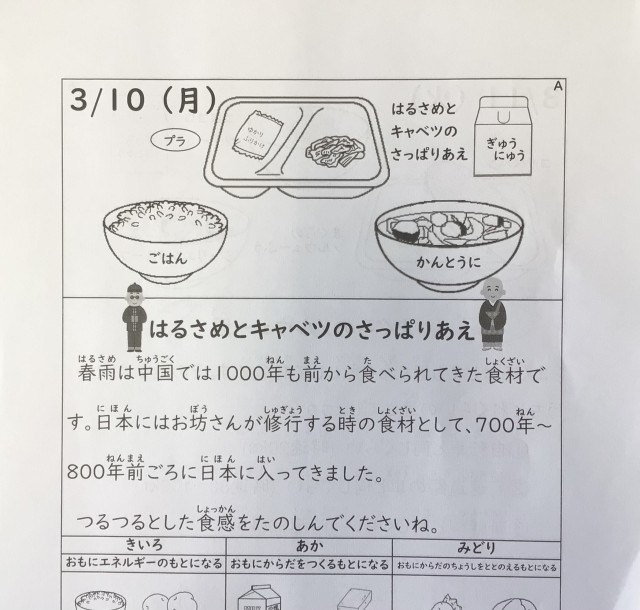 A
3/10（月）
プラ
ゆかり
ふりかけ
はるさめと
キャベツの
さっぱりあえ
ぎゅう
にゅう
ごはん
かんとうに
はるさめとキャベツのさっぱりあえ
はるさめ ちゅうごく ねん まえ た しょくざい
春雨は中国では1000年も前から食べられてきた食材で
にほん ぼう しゅぎょう とき しょくざい ねん
す。日本にはお坊さんが修行する時の食材として、700年～
ねんまえ にほん はい
800年前ごろに日本に入ってきました。
しょっかん
つるつるとした食感をたのしんでくださいね。
きいろ あか みどり
おもにエネルギーのもとになる おもにからだをつくるもとになる おもにからだのちょうしをととのえるもとになる